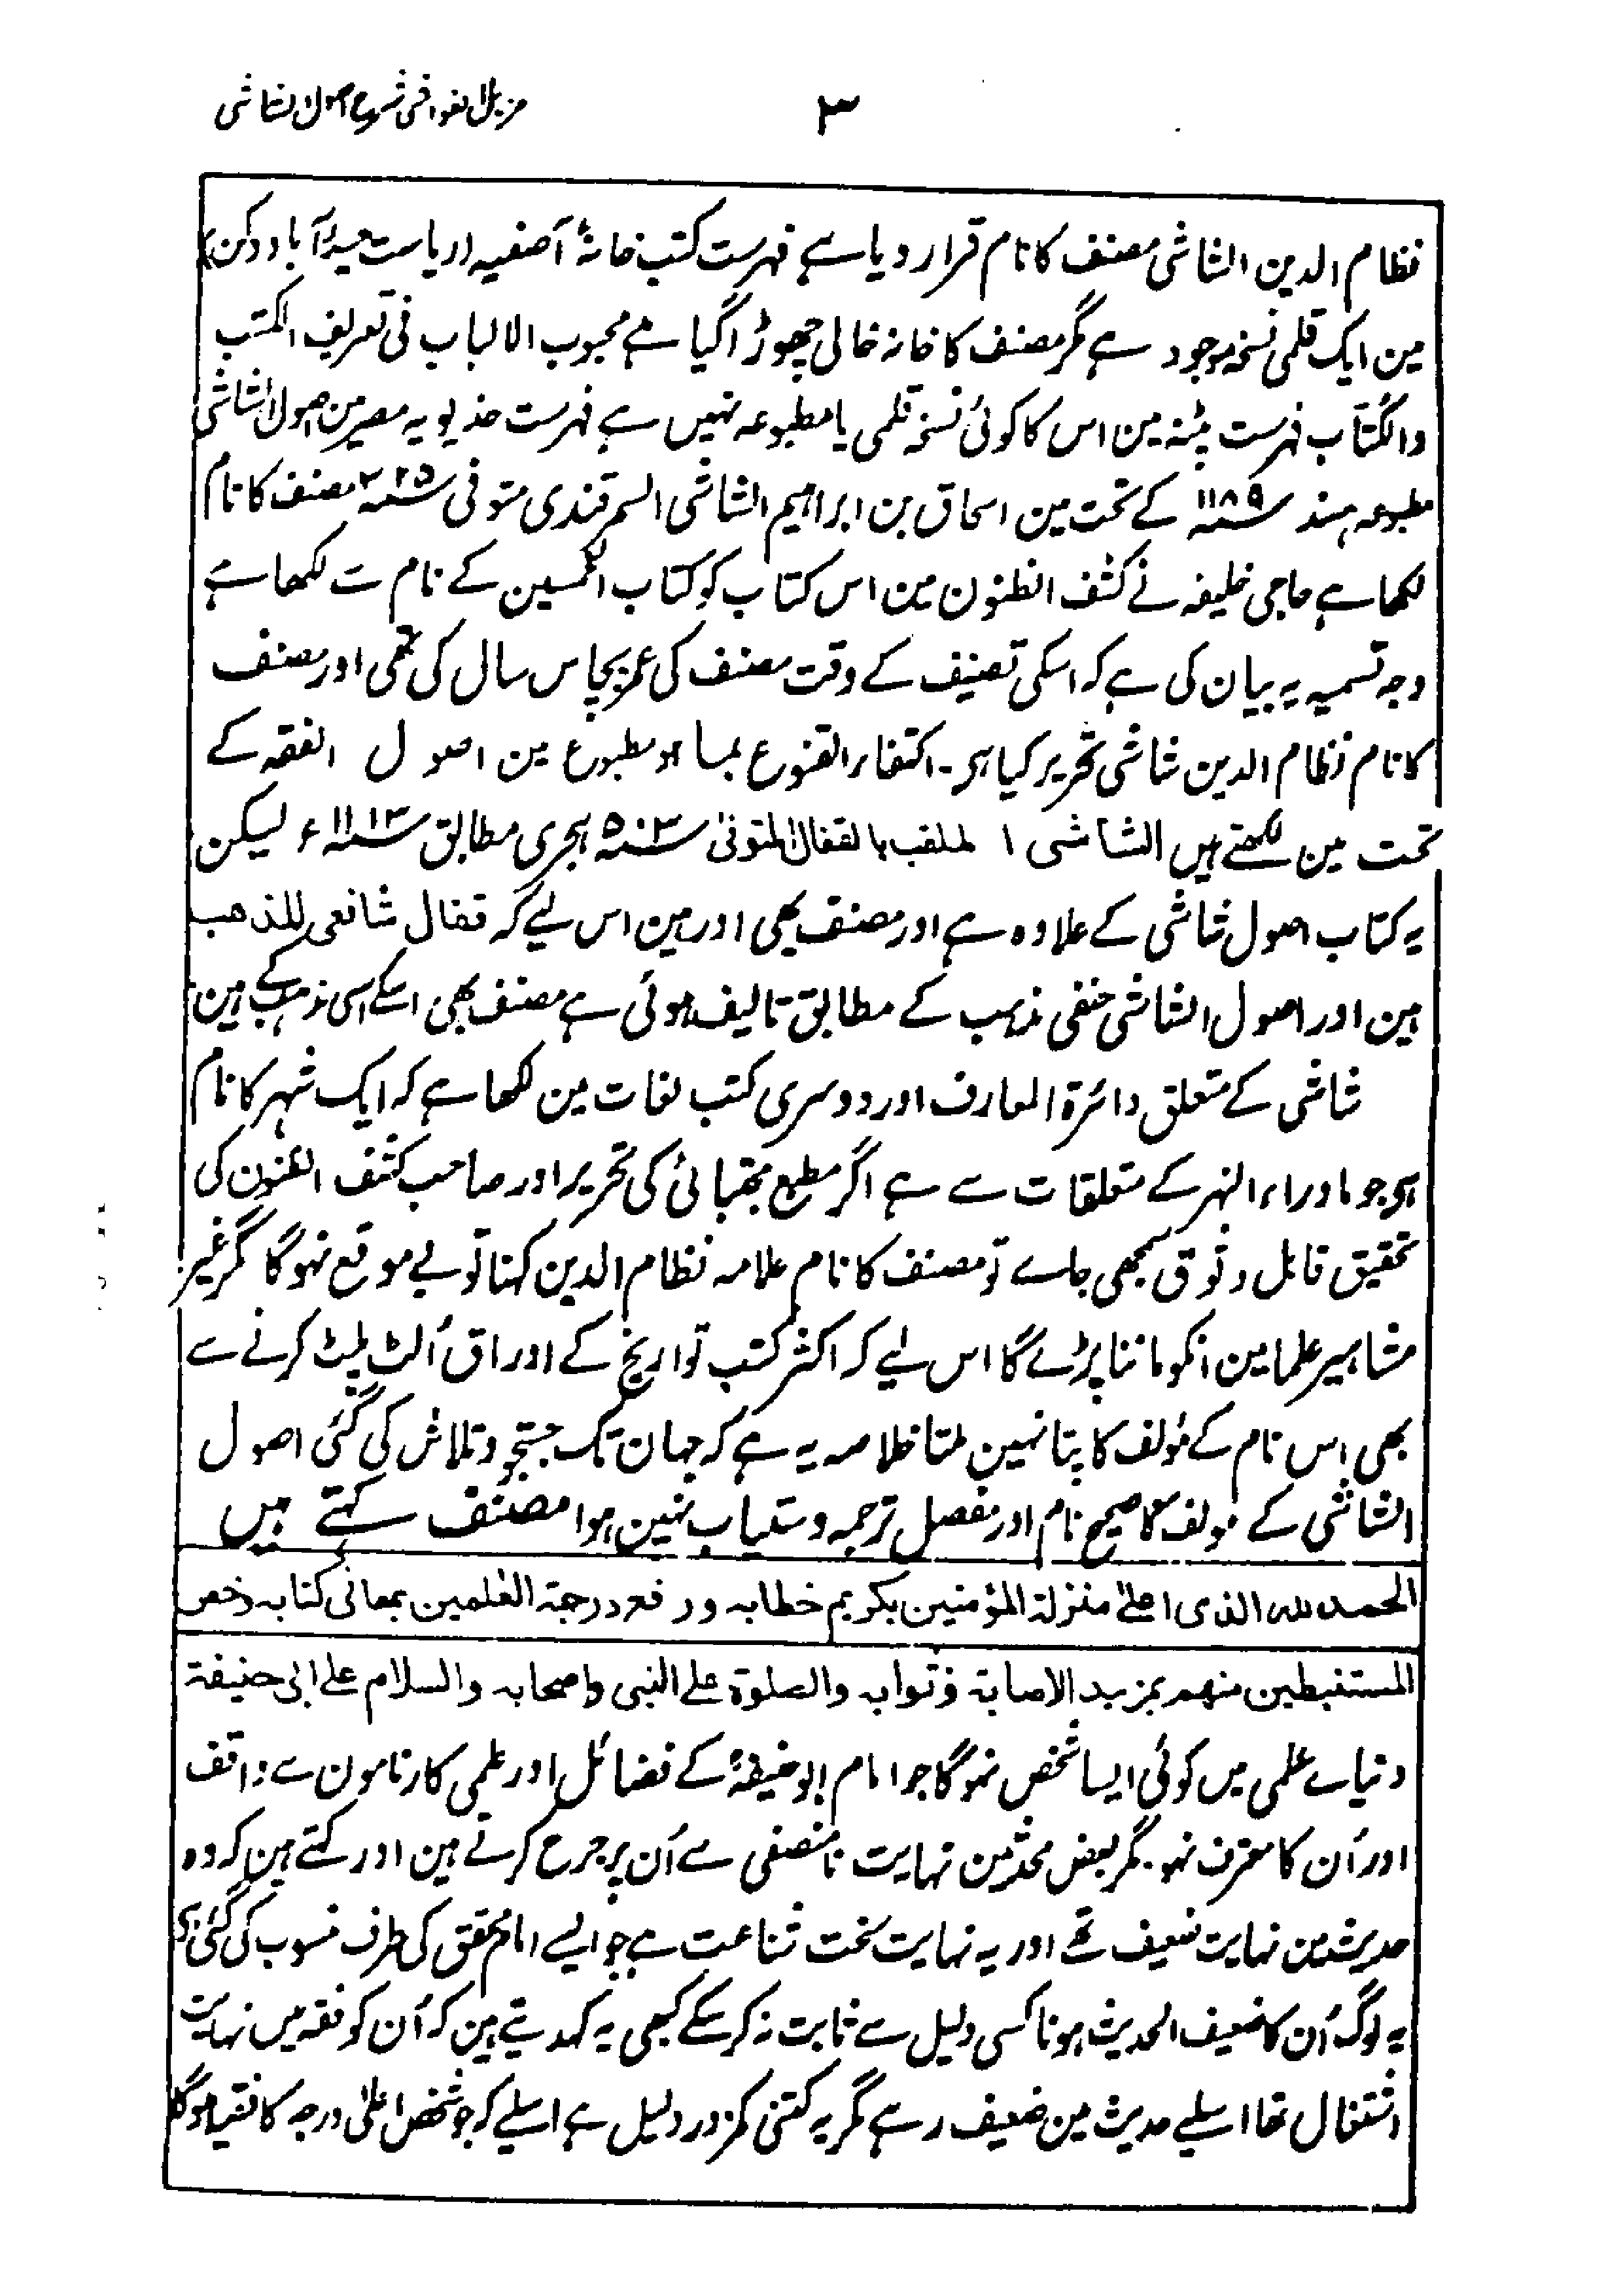 ۳
مزیل الغواشی شرح اصول الشاشی
نظام الدین الشاشی مصنف کا نام قرار دیا ہے فہرست کتب خانۂ آصفیہ (ریاست حیدرآباد دکن)
مین ایک قلمی نسخہ موجود ہے مگر مصنف کا خانہ خالی چھوڑا گیا ہے محبوب الالباب فی تعریف الکتب
والکتاب فہرست پٹنہ مین اس کا کوئی نسخہ قلمی یا مطبوعہ نہیں ہے فہرست خدیویہ مصر مین اصول الشاشی
مطبوعہ ہند ۱۱۸۹ کے تحت مین اسحاق بن ابراہیم الشاشی السمرقندی متوفی ۳۲۵ مصنف کا نام
لکھا ہے حاجی خلیفہ نے کشف الظنون مین اس کتاب کو کتاب الخمسین کے نام سے لکھا ہے
وجہ تسمیہ یہ بیان کی ہے کہ اسکی تصنیف کے وقت مصنف کی عمر پچاس سال کی تھی اور مصنف
کا نام نظام الدین شاشی تحریر کیا ہی۔ اکتفاء القنوع بما ہو مطبوع مین اصول الفقہ کے
تحت مین لکھتے ہیں الشاشی الملقب بالقفال المتوفیٰ سنہ ۵۰۳ ہجری مطابق سنہ ۱۱۱۳ء لیکن
یہ کتاب اصول شاشی کے علاوہ ہے اور مصنف بھی اور ہین اس لیے کہ قفال شافعی المذهب
ہین اور اصول الشاشی حنفی مذہب کے مطابق تالیف ہوئی ہے مصنف بھی اسکے اسی مذہب کے ہین
شاشی کے متعلق دائرۃ المعارف اور دوسری کتب لغات مین لکھا ہے کہ ایک شہر کا نام
ہی جو ماوراء النہر کے متعلقات سے ہے اگر مطبع مجتبائی کی تحریر اور صاحب کشف الظنون کی
تحقیق قابل وثوق سمجھی جاے تو مصنف کا نام علامہ نظام الدین کہنا تو بے موقع نہوگا مگر غیر
مشاہیر علما مین انکو ماننا پڑے گا اس لیے کہ اکثر کتب تواریخ کے اوراق اُلٹ پلٹ کرنے سے
بھی اس نام کے مؤلف کا پتا نہین ملتا خلاصہ یہ ہے کہ جہان تک جستجو و تلاش کی گئی اصول
الشاشی کے مولف کا صحیح نام اور مفصل ترجمہ دستیاب نہین ہوا مصنف کہتے ہیں
الحمد لله الذی اعلیٰ منزلة المؤمنین بکریم خطابه ورفع درجة العٰلمین بمعانی کتابه وخص
المستنبطین منهم بمزید الاصابة وثوابه والصلوة علی النبی واصحابه والسلام علی ابی حنیفة
دنیاے علمی میں کوئی ایسا شخص نہوگا جو امام ابو حنیفہؒ کے فضائل اور علمی کارنامون سے واقف
اور اُن کا معترف نہو۔ مگر بعض محدثین نہایت نامنصفی سے اُن پر جرح کرتے ہین اور کہتے ہین کہ وہ
حدیث مین نہایت ضعیف تھے اور یہ نہایت سخت شناعت ہے جو ایسے امام محقق کی طرف منسوب کی گئی ہی
یہ لوگ اُن کا ضعیف الحدیث ہونا کسی دلیل سے ثابت نہ کرسکے کبھی یہ کہدیتے ہین کہ اُن کو فقہ میں نہایت
اشتغال تھا اسلیے حدیث مین ضعیف رہے مگر یہ کتنی کمزور دلیل ہے اسلیے کہ جو شخص اعلیٰ درجہ کا فقیہ ہوگا